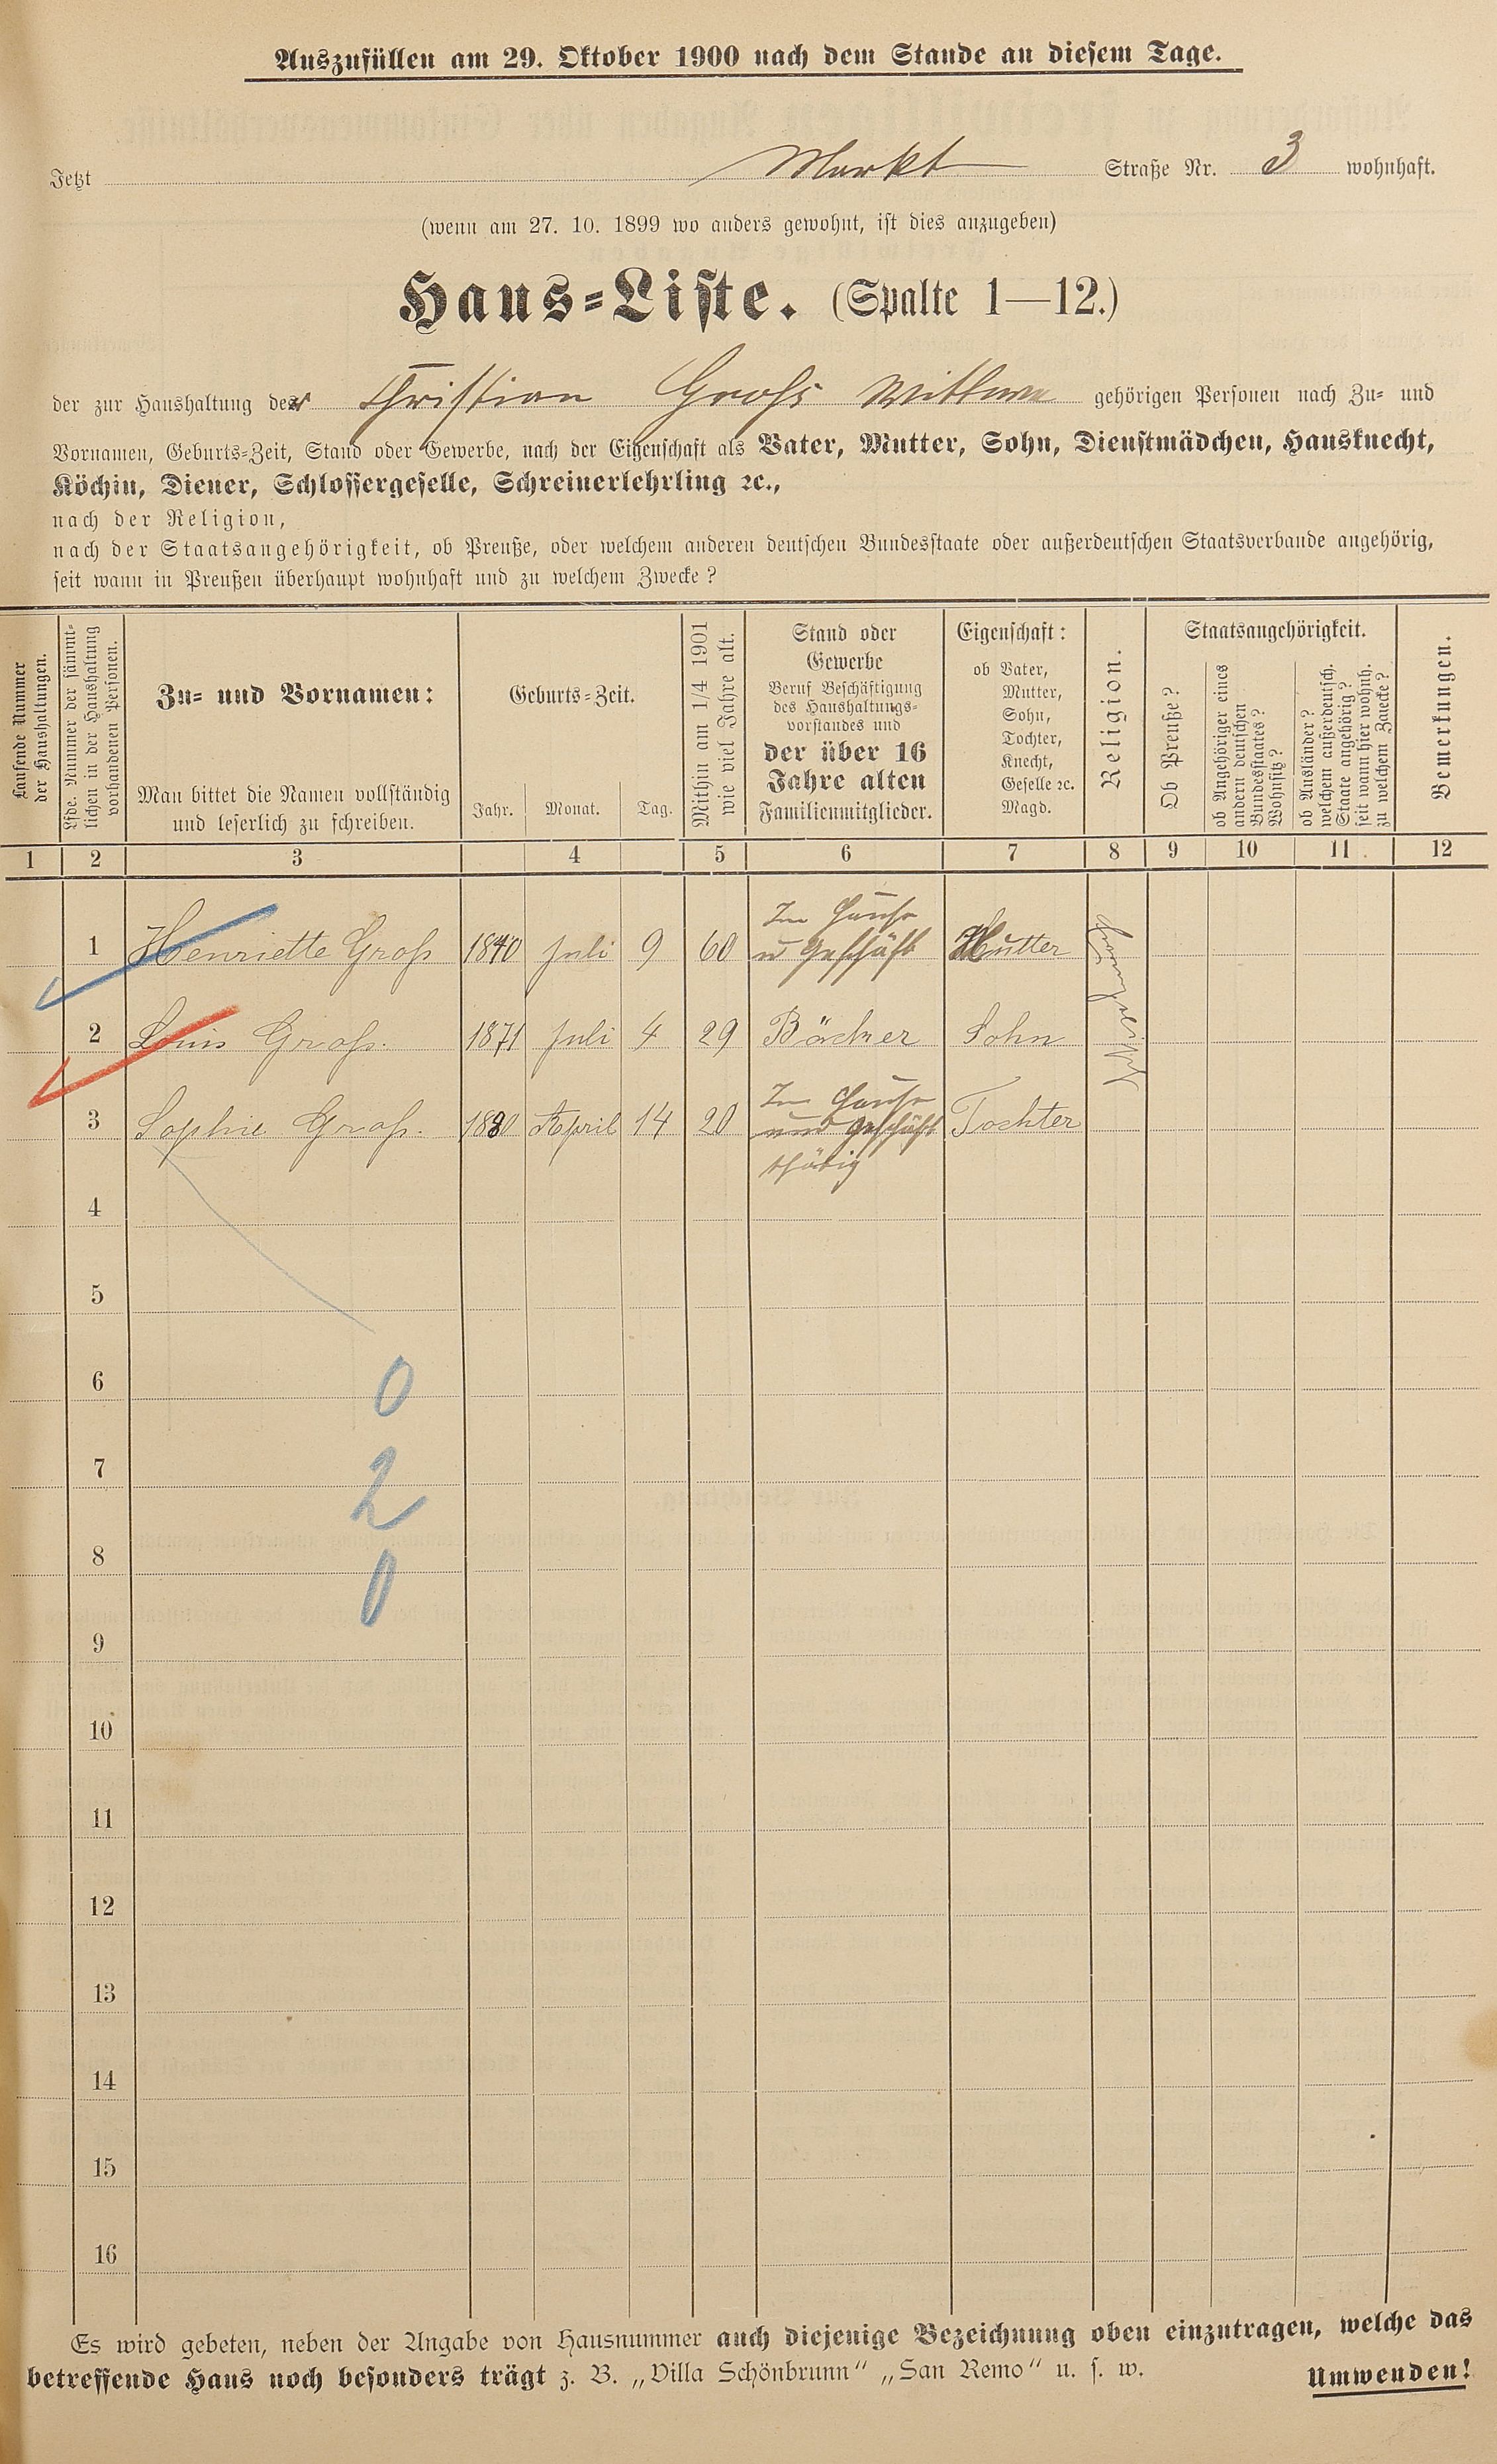 Auszufüllen am 29. Oktober 1900 nach dem Stande an diesem Tage.
Jetzt Markt Straße Nr. 3 wohnhaft.
(wenn am 27. 10. 1899 wo anders gewohnt, ist dies anzugeben)
Haus-Liste. (Spalte 1—12.)
der zur Haushaltung der Christian Groß Wittwe gehörigen Personen nach Zu- und
Vornamen, Geburts-Zeit, Stand oder Gewerbe, nach der Eigenschaft als Vater, Mutter, Sohn, Dienstmädchen, Hausknecht,
Köchin, Diener, Schlossergeselle, Schreinerlehrling ꝛc.,
nach der Religion,
nach der Staatsangehörigkeit, ob Preuße, oder welchem anderen deutschen Bundesstaate oder außerdeutschen Staatsverbande angehörig,
seit wann in Preußen überhaupt wohnhaft und zu welchem Zwecke?
Laufende Nummer
der Haushaltungen.
Lfde. Nummer der sämmt-
lichen in der Haushaltung
vorhandenen Personen.
Zu- und Vornamen:
Man bittet die Namen vollständig
und leserlich zu schreiben.
Geburts-Zeit.
Jahr. Monat. Tag.
Mithin am 1/4 1901
wie viel Jahre alt.
Stand oder
Gewerbe
Beruf Beschäftigung
des Haushaltungs-
vorstandes und
der über 16
Jahre alten
Familienmitglieder.
Eigenschaft:
ob Vater,
Mutter,
Sohn,
Tochter,
Knecht,
Geselle ꝛc.
Magd.
Religion.
Staatsangehörigkeit.
Ob Preuße?
ob Angehöriger eines
andern deutschen
Bundesstaates?
Wohnsitz?
ob Ausländer?
welchem außerdeutsch.
Staate angehörig?
seit wann hier wohnh.
zu welchem Zwecke?
Bemerkungen.
1 2 3 4 5 6 7 8 9 10 11 12
1 Henriette Groß 1840 Juli 9 60 Im Hause u Geschäft Mutter Evangelisch
2 Louis Groß. 1871 Juli 4 29 Bäcker Sohn
3 Sophie Groß. 1880 April 14 20 Im Hause und Geschäft thätig Tochter
4
5
6
0
7
2
8
0
9
10
11
12
13
14
15
16
Es wird gebeten, neben der Angabe von Hausnummer auch diejenige Bezeichnung oben einzutragen, welche das
betreffende Haus noch besonders trägt z. B. „Villa Schönbrunn" „San Remo" u. s. w. Umwenden!